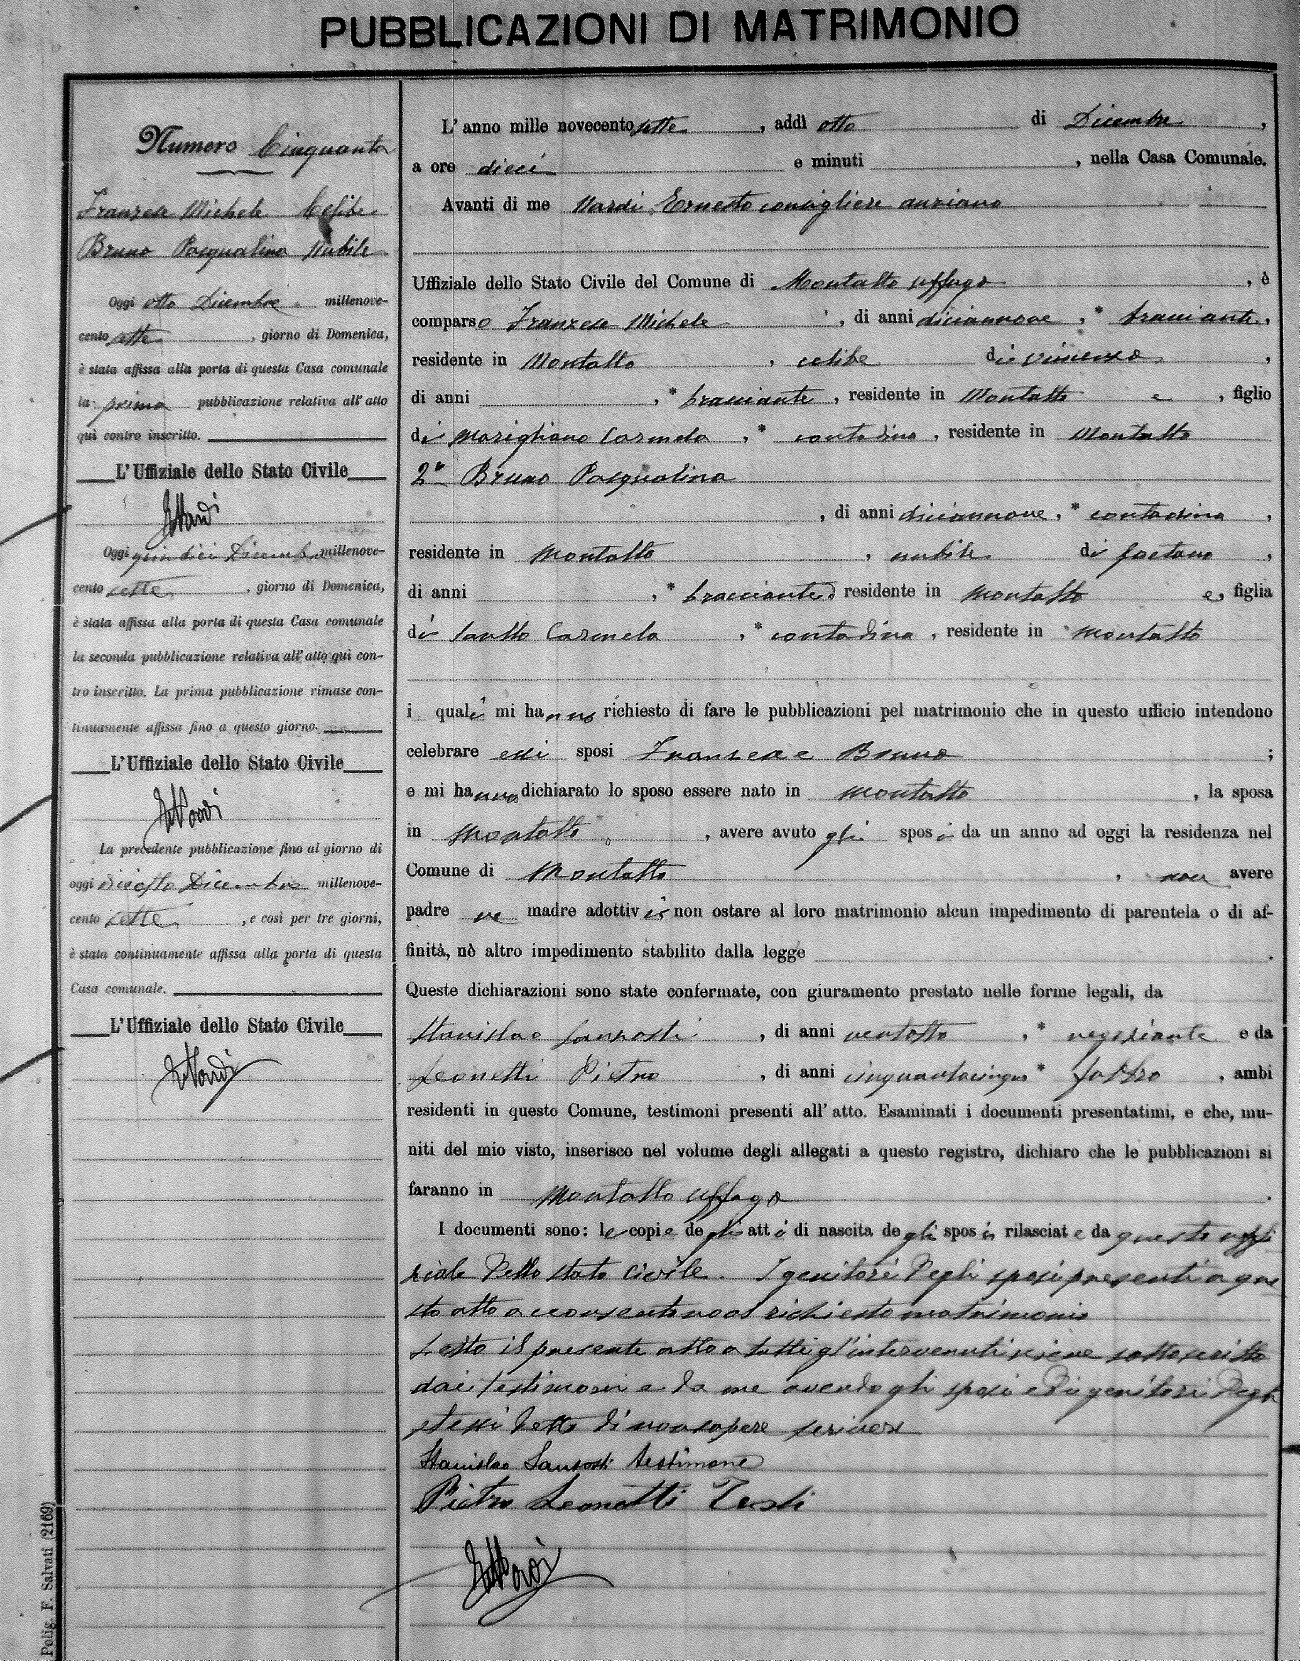 PUBBLICAZIONI DI MATRIMONIO
Numero Cinquanta
Franzese Michele Celibe
Bruno Pasqualina Nubile
Oggi otto Dicembre millenove-
cento sette, giorno di Domenica,
è stata affissa alla porta di questa Casa comunale
la prima pubblicazione relativa all'atto
qui contro inscritto.
L'Uffiziale dello Stato Civile
ENardi
Oggi quindici Dicembre millenove-
cento sette, giorno di Domenica,
è stata affissa alla porta di questa Casa comunale
la seconda pubblicazione relativa all'atto quì con-
tro inscritto. La prima pubblicazione rimase con-
tinuamente affissa fino a questo giorno.
L'Uffiziale dello Stato Civile
ENardi
La precedente pubblicazione fino al giorno di
oggi diciotto Dicembre millenove-
cento sette, e così per tre giorni,
è stata continuamente affissa alla porta di questa
Casa comunale.
L'Uffiziale dello Stato Civile
ENardi
Polig. F. Salvati (2169)
L'anno mille novecento sette, addì otto di Dicembre,
a ore dieci e minuti , nella Casa Comunale.
Avanti di me Nardi Ernesto consigliere anziano
Uffiziale dello Stato Civile del Comune di Montalto Uffugo, è
comparso Franzese Michele, di anni diciannove, * bracciante,
residente in Montalto, celibe di Vincenzo,
di anni , * bracciante, residente in Montalto e, figlio
di Marigliano Carmela, * contadina, residente in Montalto
2º Bruno Pasqualina
, di anni diciannove, * contadina,
residente in Montalto, nubile di Gaetano,
di anni , * bracciante residente in Montalto e, figlia
di Carmela, * contadina, residente in Montalto
i quali mi hanno richiesto di fare le pubblicazioni pel matrimonio che in questo ufficio intendono
celebrare essi sposi Franzese e Bruno;
e mi hanno dichiarato lo sposo essere nato in Montalto, la sposa
in Montalto, avere avuto gli sposi da un anno ad oggi la residenza nel
Comune di Montalto, non avere
padre ne madre adottivi e non ostare al loro matrimonio alcun impedimento di parentela o di af-
finità, nè altro impedimento stabilito dalla legge.
Queste dichiarazioni sono state confermate, con giuramento prestato nelle forme legali, da
Stanislao Sanzosti, di anni ventotto, * negoziante e da
Leonetti Pietro, di anni cinquantacinque * fabbro, ambi
residenti in questo Comune, testimoni presenti all'atto. Esaminati i documenti presentatimi, e che, mu-
niti del mio visto, inserisco nel volume degli allegati a questo registro, dichiaro che le pubblicazioni si
faranno in Montalto Uffugo.
I documenti sono: le copie degli atti di nascita degli sposi rilasciate da questo uffi
ziale dello stato civile. I genitori degli sposi presenti a que
sto atto acconsentono al richiesto matrimonio
Letto il presente atto a tutti gl'intervenuti viene sottoscritto
dai testimoni e da me avendo gli sposi ed i genitori degli
stessi detto di non sapere scrivere
Stanislao Sanzosti testimone
Pietro Leonetti Testi
ENardi